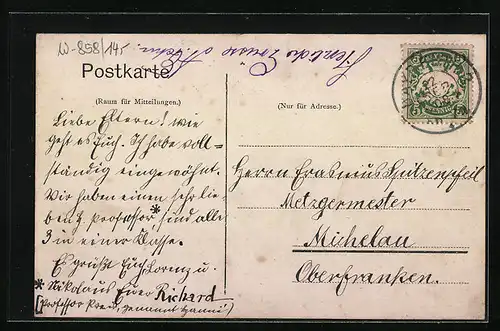 W-858/145
Postkarte
(Raum für Mitteilungen.)
(Nur für Adresse.)
Liebe Eltern! wie
geht es Euch. Ich habe voll-
ständig eingewöhnt.
Wir haben einen sehr lie-
ben H. professor*, sind alle
3 in einer Klasse.
Es grüßt Euch Lorenz u.
* Nikolaus Euer Richard
(professor genannt
Herrn Erasmus Schützenpfeil
Metzgermeister
Michelau
Oberfranken.